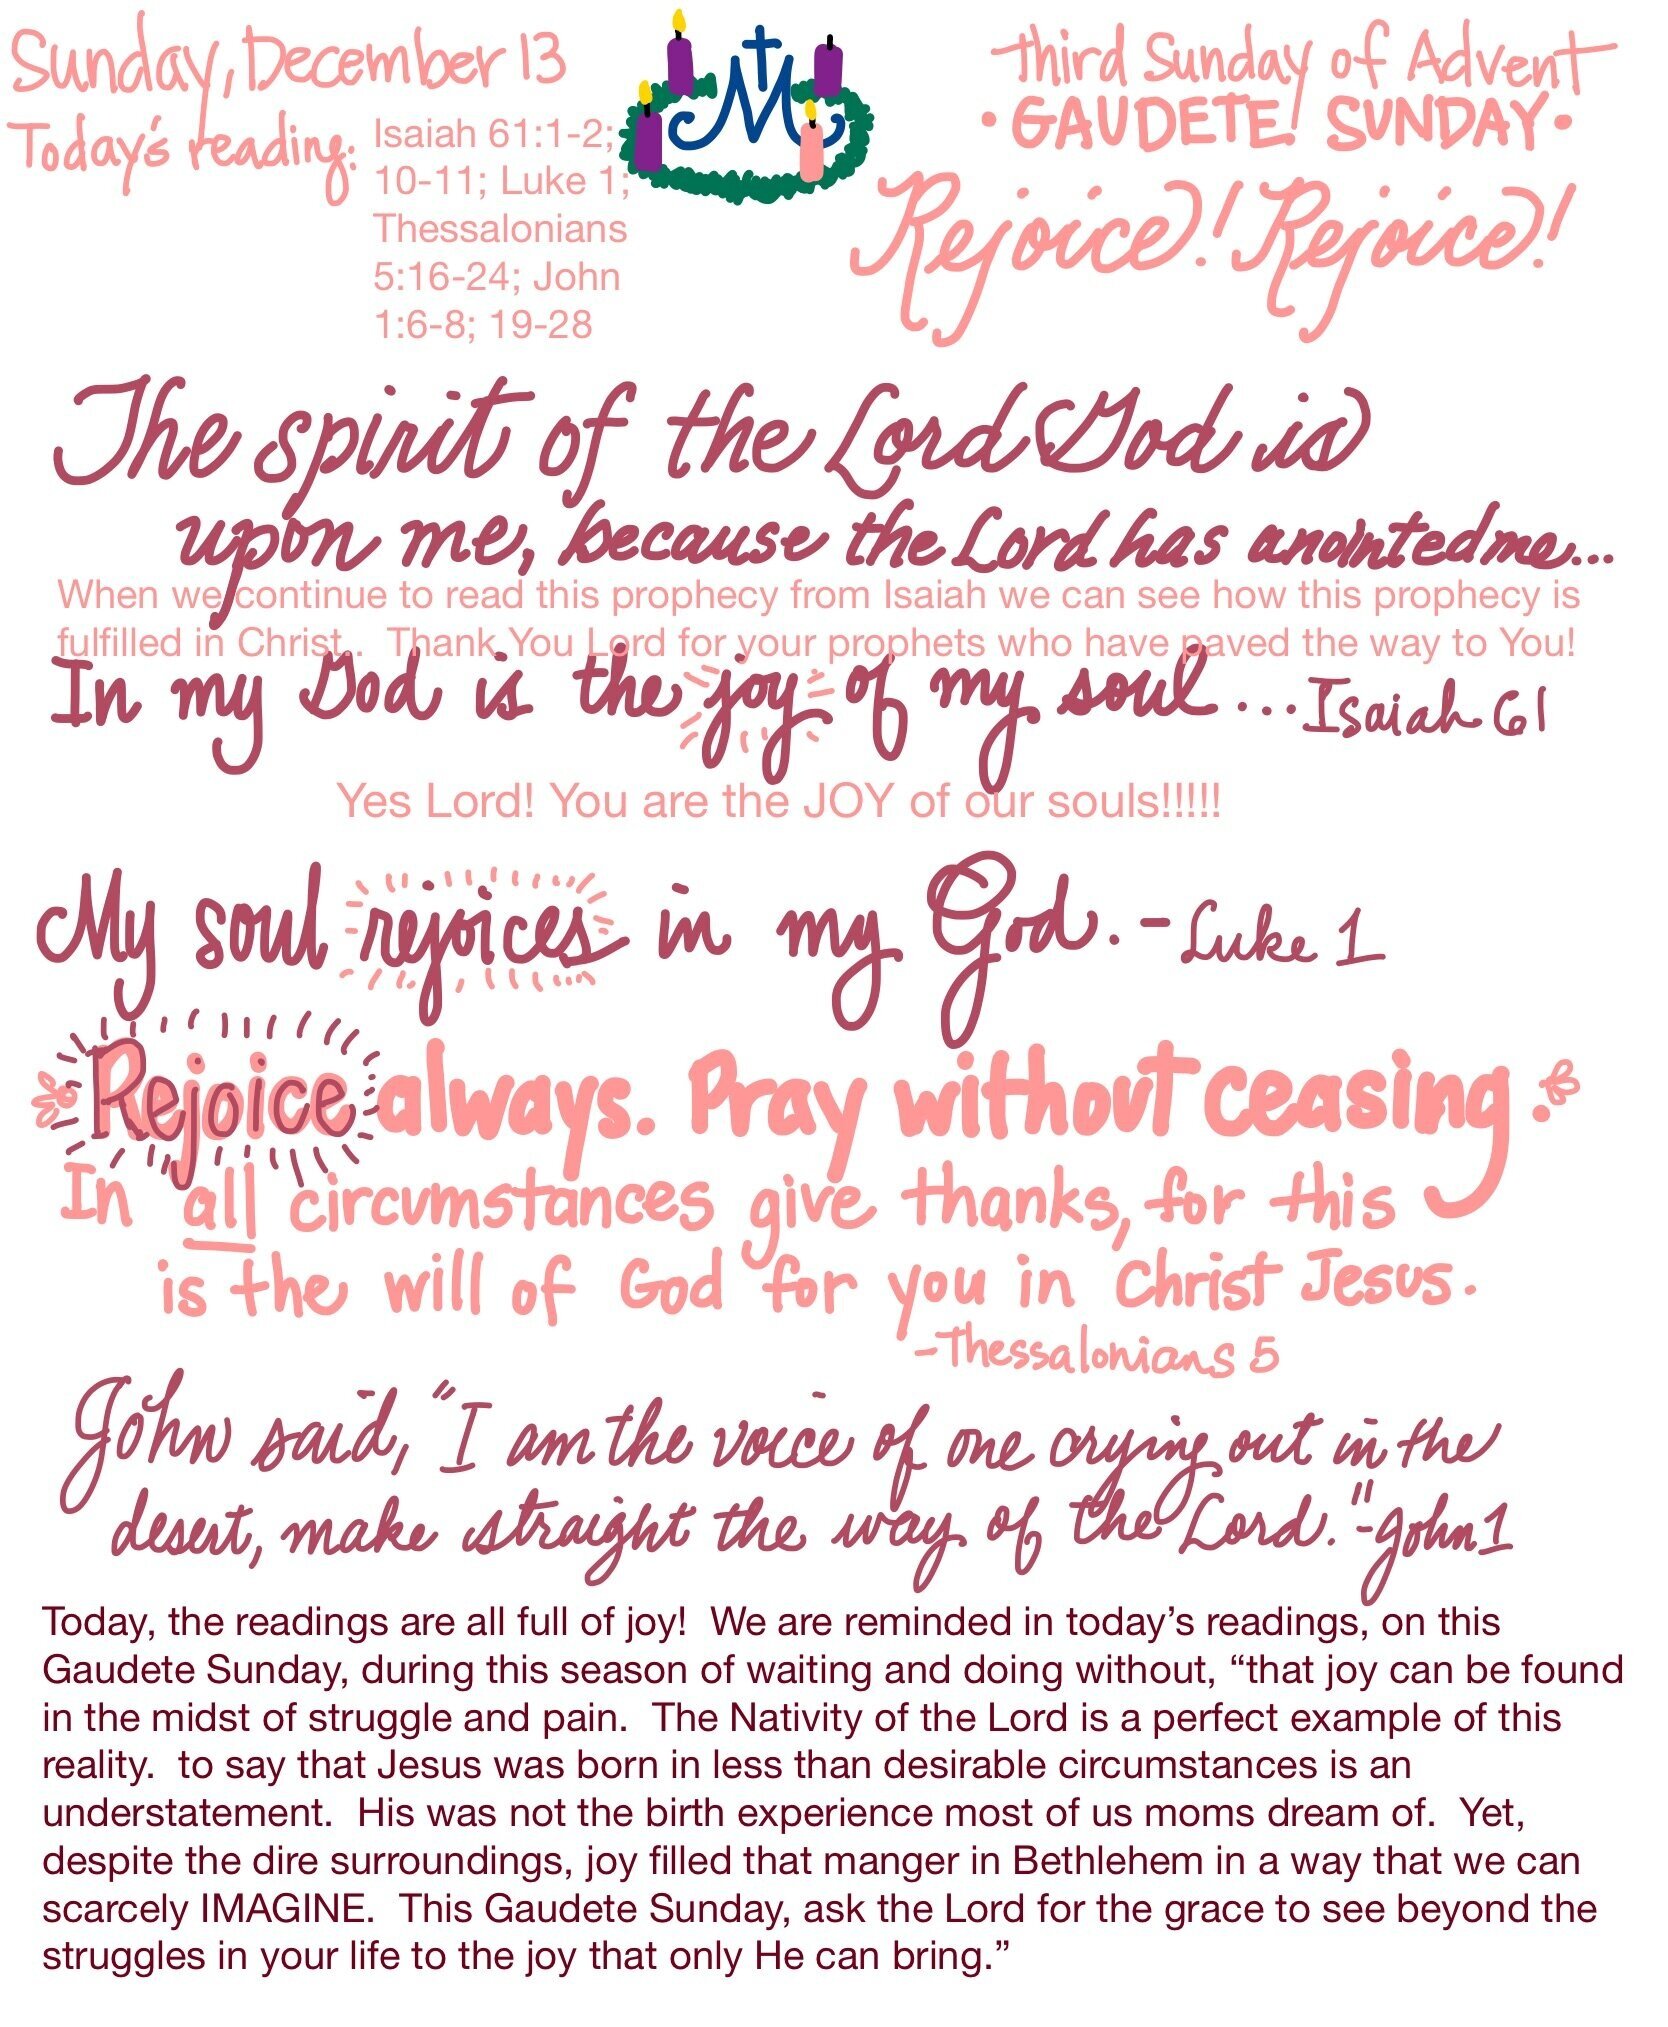 Sunday, December 13
Today's reading:
Isaiah 61:1-2;
10-11; Luke 1;
Thessalonians
5:16-24; John
1:6-8; 19-28
M
Third Sunday of Advent
• GAUDETE! SUNDAY •
Rejoice! Rejoice!
The spirit of the Lord God is
upon me, because the Lord has anointed me...
When we continue to read this prophecy from Isaiah we can see how this prophecy is
fulfilled in Christ.. Thank You Lord for your prophets who have paved the way to You!
In my God is the joy of my soul ... Isaiah 61
Yes Lord! You are the JOY of our souls!!!!!
My soul rejoices in my God. - Luke 1
Rejoice always. Pray without ceasing.
In all circumstances give thanks, for this
is the will of God for you in Christ Jesus.
-Thessalonians 5
John said, "I am the voice of one crying out in the
desert, make straight the way of the Lord." - John 1
Today, the readings are all full of joy! We are reminded in today’s readings, on this
Gaudete Sunday, during this season of waiting and doing without, “that joy can be found
in the midst of struggle and pain. The Nativity of the Lord is a perfect example of this
reality. to say that Jesus was born in less than desirable circumstances is an
understatement. His was not the birth experience most of us moms dream of. Yet,
despite the dire surroundings, joy filled that manger in Bethlehem in a way that we can
scarcely IMAGINE. This Gaudete Sunday, ask the Lord for the grace to see beyond the
struggles in your life to the joy that only He can bring.”